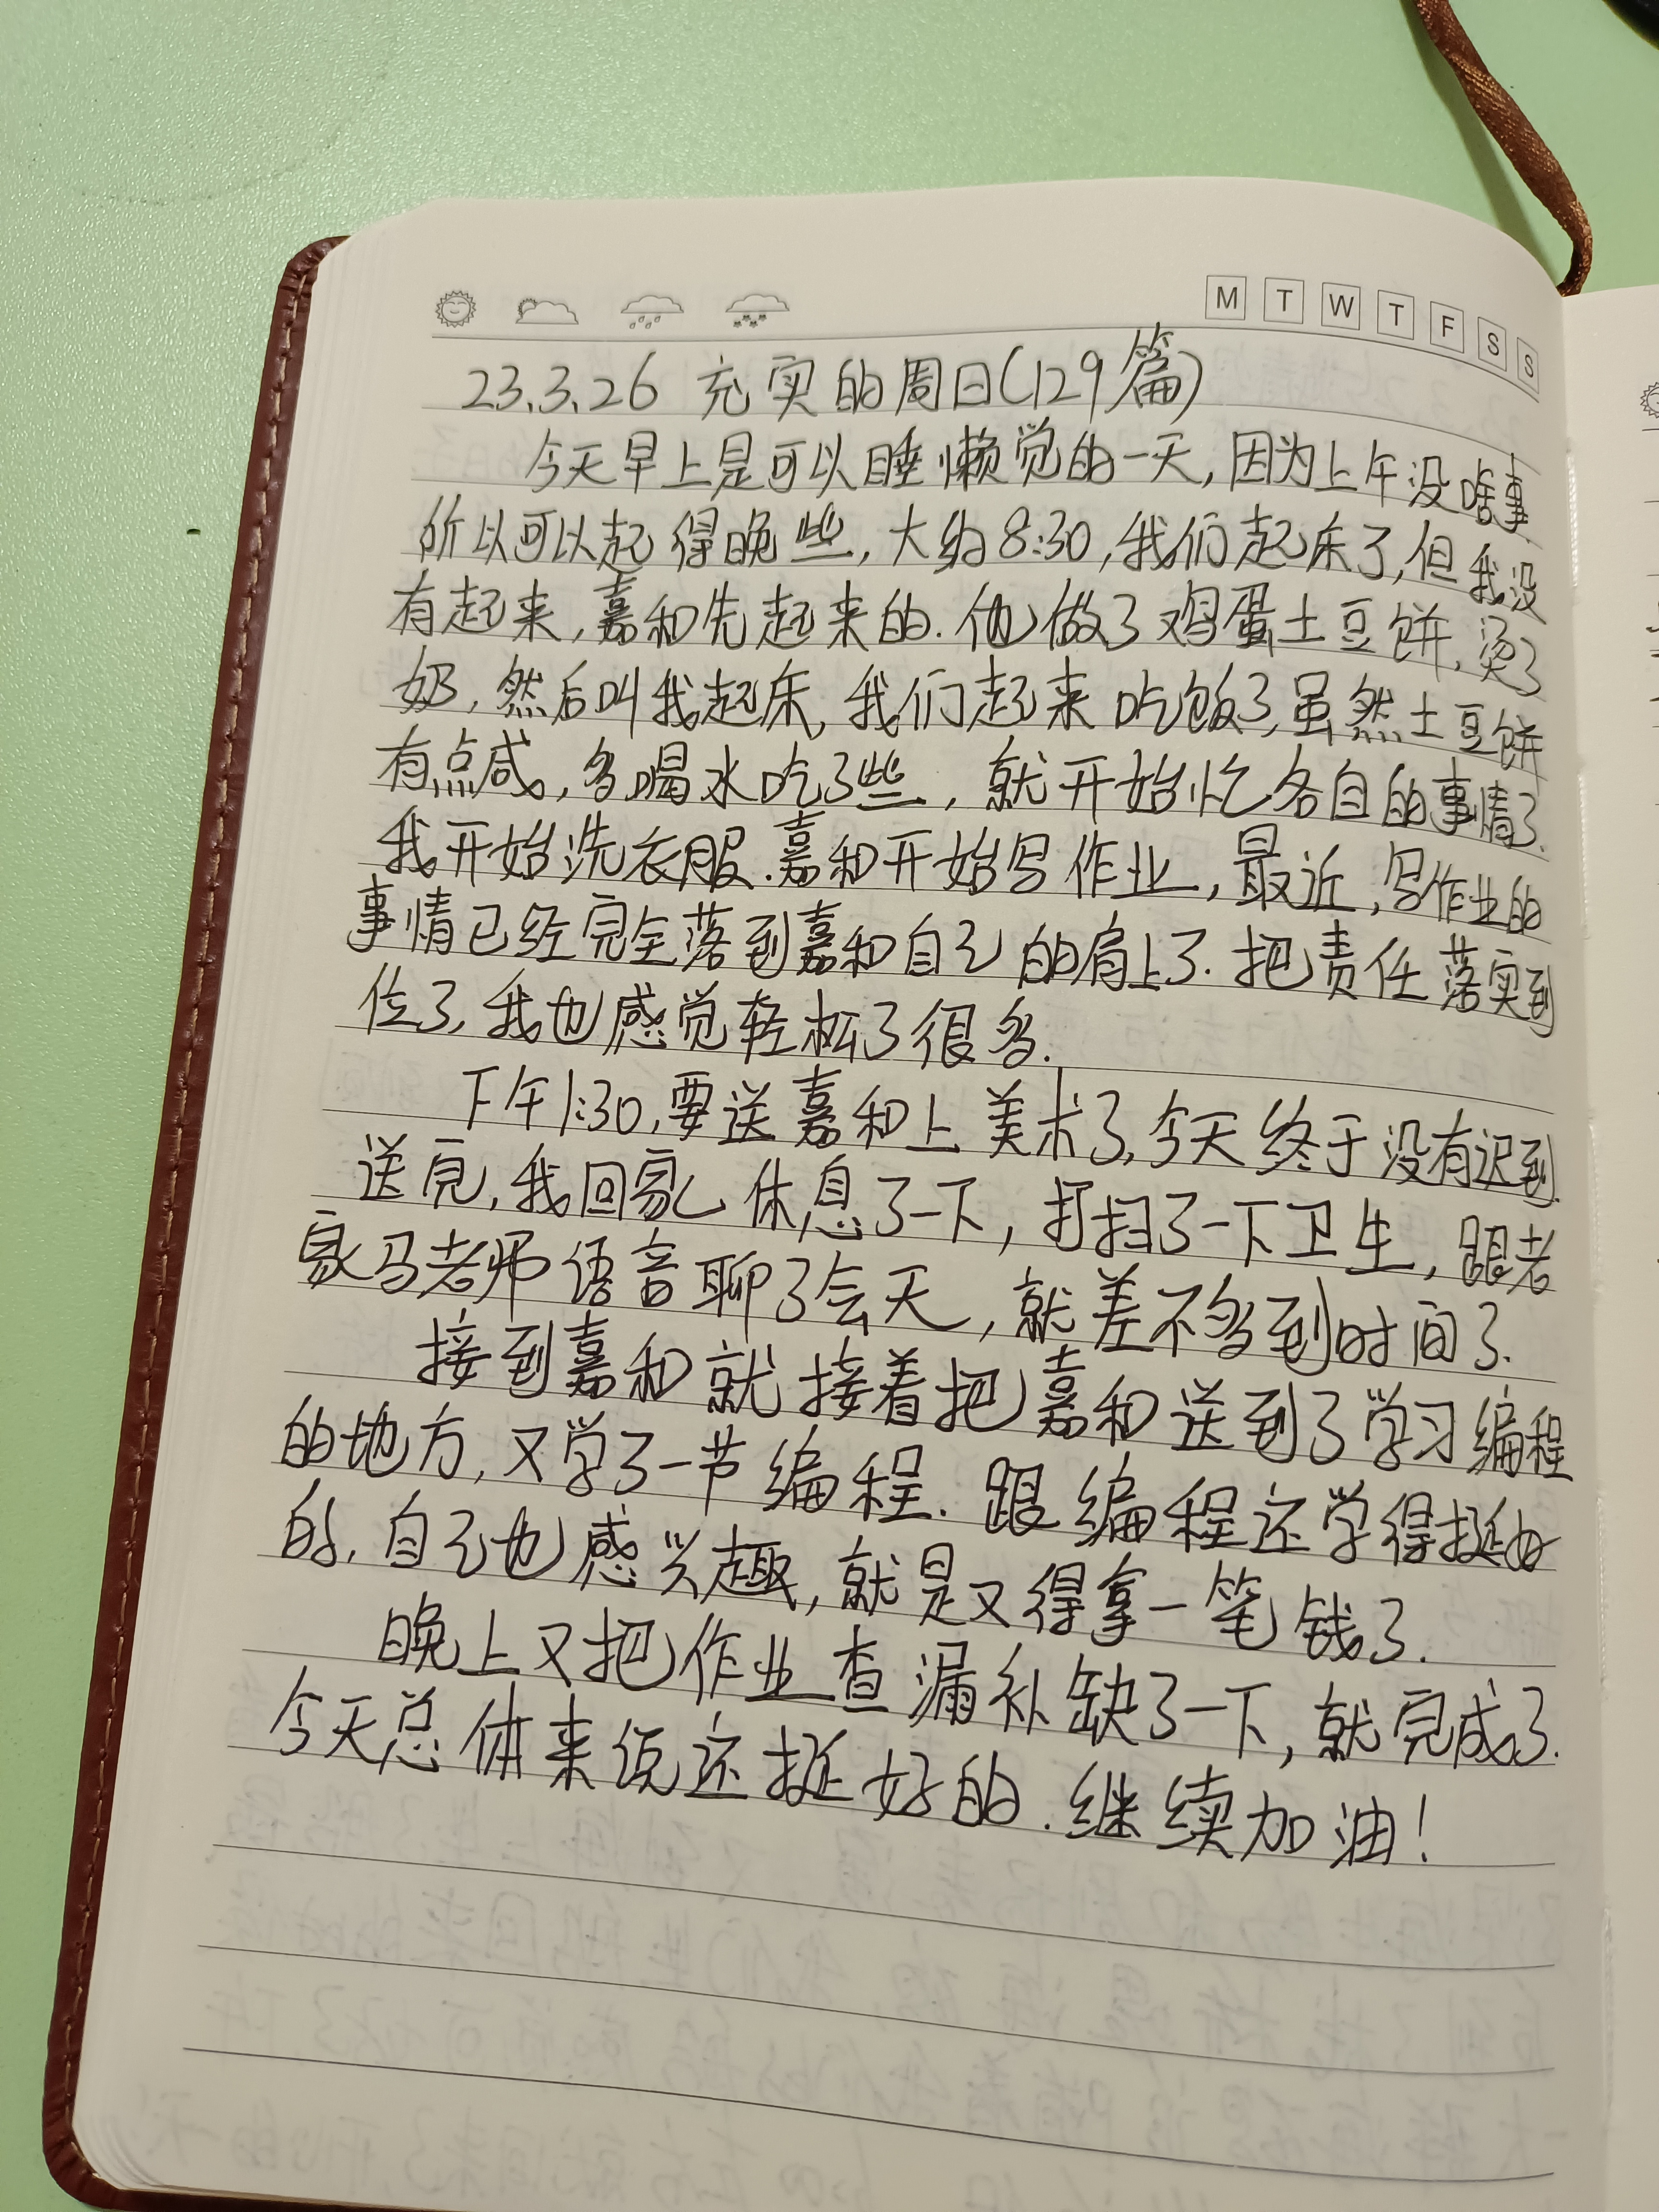 M T W T F S S
23.3.26 充实的周日(129篇)
今天早上是可以睡懒觉的一天,因为上午没啥事.
所以可以起得晚些,大约8:30,我们起床了,但我没
有起来,嘉和先起来的.他做了鸡蛋土豆饼,烫了
奶,然后叫我起床,我们起来吃饭了,虽然土豆饼
有点咸,多喝水吃了些,就开始忙各自的事情了.
我开始洗衣服.嘉和开始写作业,最近,写作业的
事情已经完全落到嘉和自己的肩上了.把责任落实到
位了,我也感觉轻松了很多.
下午1:30,要送嘉和上美术了,今天终于没有迟到.
送完,我回家休息了一下,打扫了一下卫生,跟老
家马老师语音聊了会天,就差不多到时间了.
接到嘉和就接着把嘉和送到了学习编程
的地方,又学了一节编程.跟编程还学得挺好
的,自己也感兴趣,就是又得拿一笔钱了.
晚上又把作业查漏补缺了一下,就完成了.
今天总体来说还挺好的.继续加油!